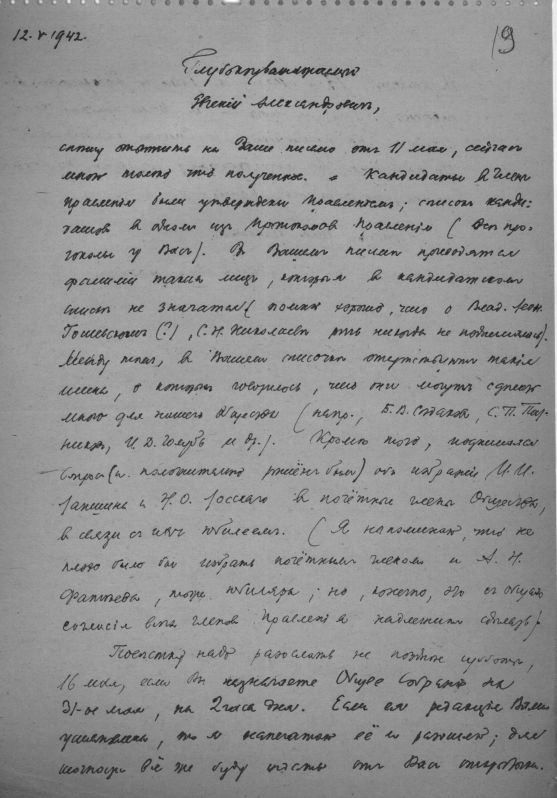 12. V 1942.
19
Глубокоуважаемый
Евгений Александрович,
спешу ответить на Ваше письмо отъ 11 мая, сейчасъ
мною только что полученное. Кандидаты в члены
Правления были утверждены Правлениемъ; список канди-
датов в одном изъ протоколов Правления (Все про-
токолы у Васъ). В Вашем письме приводятся
фамилии таких лицъ, которыя в кандидатском
списке не значатся (помню хорошо, что о Влад.
(?), С. Н. Николаеве речь никогда не поднималась).
Между тем, в Вашем списке отсутствуют такие
имена, о которых говорилось, что они могут сделать
много для нашего Общества (напр., С. П.
И. Д. и др.). Кроме того, поднимался
вопрос (и положительно решён был) объ избрании И. И.
Лапшина и Н. О. Лосского в почётные члены Общества,
в связи с их юбилеем. (Я напоминаю, что не
плохо было бы избрать почётным членом и А. Н.
Фатеева, тоже юбиляра; но, конечно, это с общаго
согласия всех членов Правления надлежит сделать).
Повестки надо разослать не позднее субботы,
16 мая, если Вы назначаете Общее Собрание на
31-ое мая, на 2 часа дня. Если ея редакция Вами
установлена, то я напечатаю её и разошлю; для
всё же буду ждать от Васъ